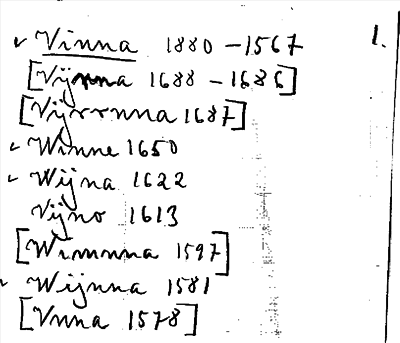 ✓ Vinna 1880 - 1567 1.
[Vijnna 1688 - 1686]
[Vijnnna 1687]
✓ Winne 1650
✓ Wijna 1622
Vijno 1613
[Wimnna 1597]
✓ Wijnna 1581
[Vnna 1578]